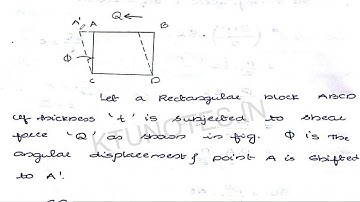 A' A Q ← B
Φ
C D
Let a Rectangular block ABCD
of thickness 't' is subjected to shear
force 'Q' as shown in fig. Φ is the
angular displacement & point A is shifted
to A'.
KTUNOTES.IN